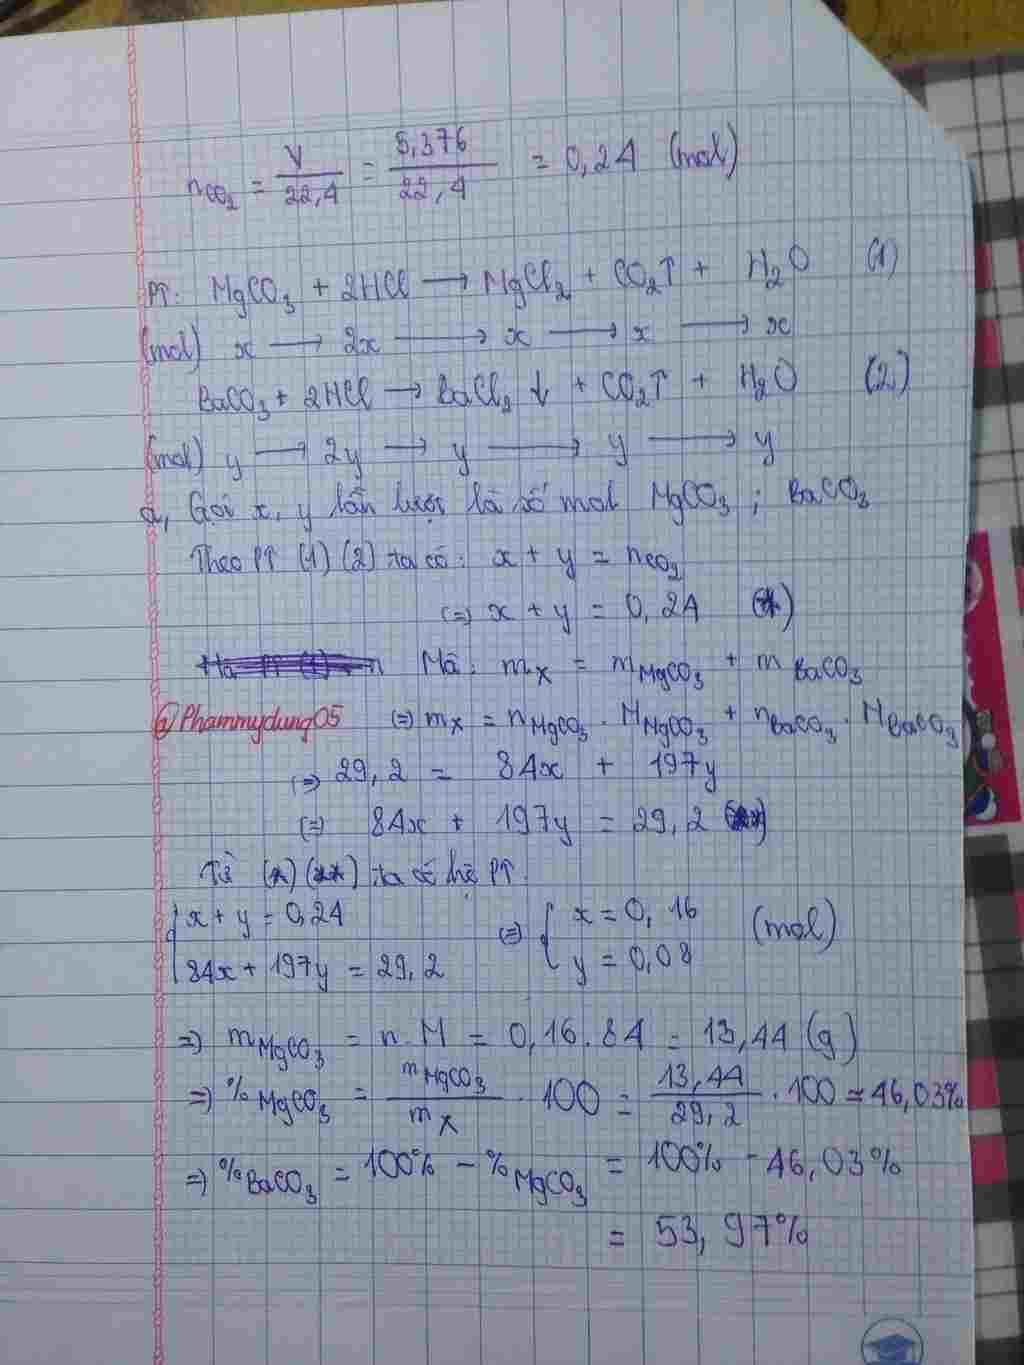 nCO₂ = V/22,4 = 5,376/22,4 = 0,24 (mol)
PT: MgCO₃ + 2HCl → MgCl₂ + CO₂↑ + H₂O (1)
(mol) x → 2x → x → x → x
BaCO₃ + 2HCl → BaCl₂ ↓ + CO₂↑ + H₂O (2)
(mol) y → 2y → y → y → y
a, Gọi x, y lần lượt là số mol MgCO₃ ; BaCO₃
Theo PT (1) (2) ta có: x + y = nCO₂
(=) x + y = 0,24 (*)
Mà: mX = mMgCO₃ + mBaCO₃
@Phammydung05 (=) mX = nMgCO₃ . MMgCO₃ + nBaCO₃ . MBaCO₃
(=) 29,2 = 84x + 197y
(=) 84x + 197y = 29,2 (**)
Từ (*) (**) ta có hệ PT:
{ x + y = 0,24 (=) { x = 0,16 (mol)
84x + 197y = 29,2 y = 0,08
=) mMgCO₃ = n.M = 0,16.84 = 13,44 (g)
=) %MgCO₃ = mMgCO₃/mX . 100 = 13,44/29,2 . 100 ≈ 46,03%
=) %BaCO₃ = 100% - %MgCO₃ = 100% - 46,03%
= 53,97%